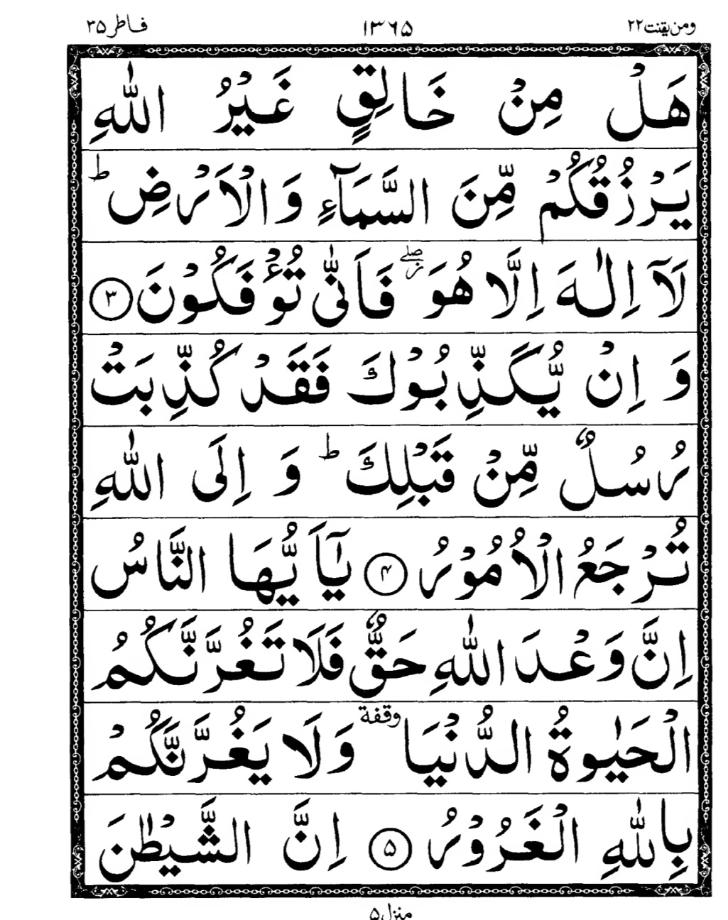 ومن یقنت ۲۲ ۱۳۶۵ فاطر ۳۵
هَلْ مِنْ خَالِقٍ غَيْرُ اللّٰهِ
يَرْزُقُكُمْ مِّنَ السَّمَآءِ وَالْاَرْضِ ؕ
لَاۤ اِلٰهَ اِلَّا هُوَ ۖ فَاَنّٰى تُؤْفَكُوْنَ ۝۳
وَ اِنْ يُّكَذِّبُوْكَ فَقَدْ كُذِّبَتْ
رُسُلٌ مِّنْ قَبْلِكَ ؕ وَ اِلَى اللّٰهِ
تُرْجَعُ الْاُمُوْرُ ۝۴ يٰۤاَيُّهَا النَّاسُ
اِنَّ وَعْدَ اللّٰهِ حَقٌّ فَلَا تَغُرَّنَّكُمُ
الْحَيٰوةُ الدُّنْيَا وقفة وَلَا يَغُرَّنَّكُمْ
بِاللّٰهِ الْغَرُوْرُ ۝۵ اِنَّ الشَّيْطٰنَ
منزل ۵